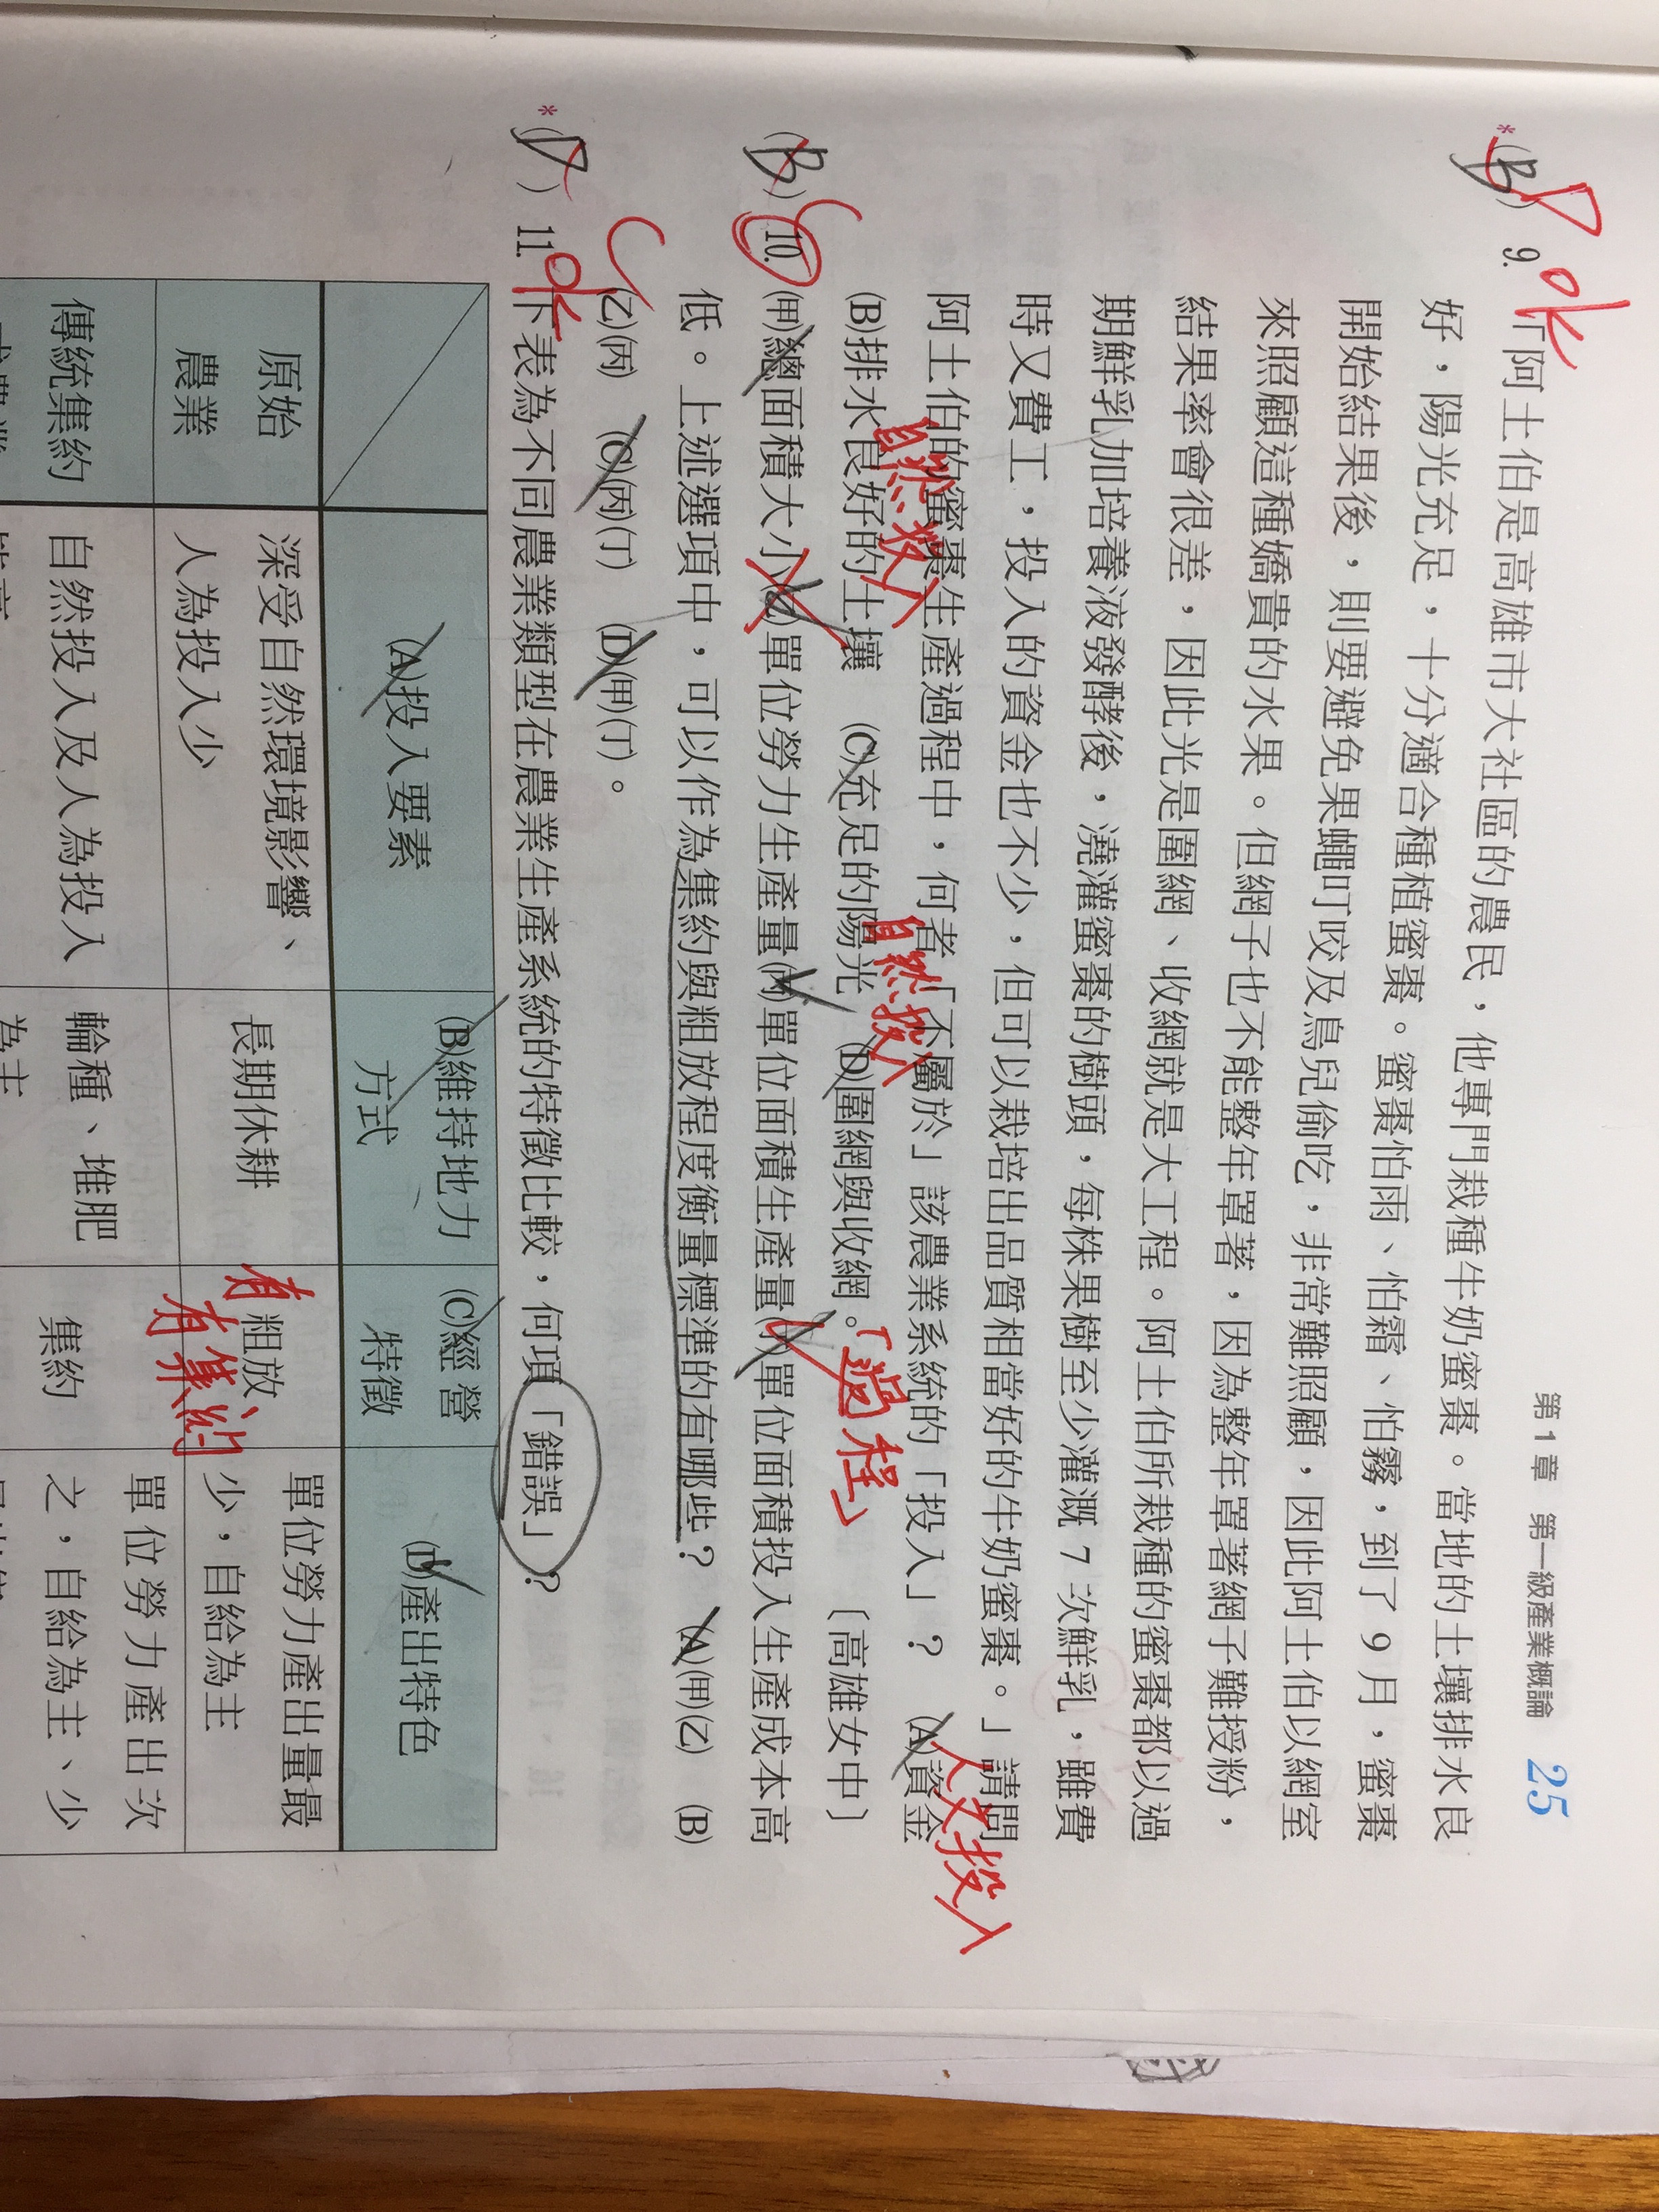 第1章 第一級產業概論 25
*(B) D 9. ok 「阿土伯是高雄市大社區的農民，他專門栽種牛奶蜜棗。當地的土壤排水良
好，陽光充足，十分適合種植蜜棗。蜜棗怕雨、怕霜、怕霧，到了9月，蜜棗
開始結果後，則要避免果蠅叮咬及鳥兒偷吃，非常難照顧，因此阿土伯以網室
來照顧這種嬌貴的水果。但網子也不能整年罩著，因為整年罩著網子難授粉，
結果率會很差，因此光是圍網、收網就是大工程。阿土伯所栽種的蜜棗都以過
期鮮乳加培養液發酵後，澆灌蜜棗的樹頭，每株果樹至少灌溉7次鮮乳，雖費
時又費工，投入的資金也不少，但可以栽培出品質相當好的牛奶蜜棗。」請問
阿土伯的蜜棗生產過程中，何者「不屬於」該農業系統的「投入」？ (A)資金
人文投入
自然投入 自然投入
(B)排水良好的土壤 (C)充足的陽光 (D)圍網與收網。「過程」〔高雄女中〕
(B) C 10. (甲)總面積大小(乙)單位勞力生產量(丙)單位面積生產量(丁)單位面積投入生產成本高
低。上述選項中，可以作為集約與粗放程度衡量標準的有哪些？ (A)(甲)(乙) (B)
(乙)(丙) (C)(丙)(丁) (D)(甲)(丁)。
*(D) C 11. ok 下表為不同農業類型在農業生產系統的特徵比較，何項「錯誤」？
(A)投入要素 (B)維持地力方式 (C)經營特徵 (D)產出特色
原始農業 深受自然環境影響、人為投入少 長期休耕 有粗放 有集約 單位勞力產出量最少，自給為主
傳統集約 自然投入及人為投入 輪種、堆肥 集約 單位勞力產出次之，自給為主、少
為主